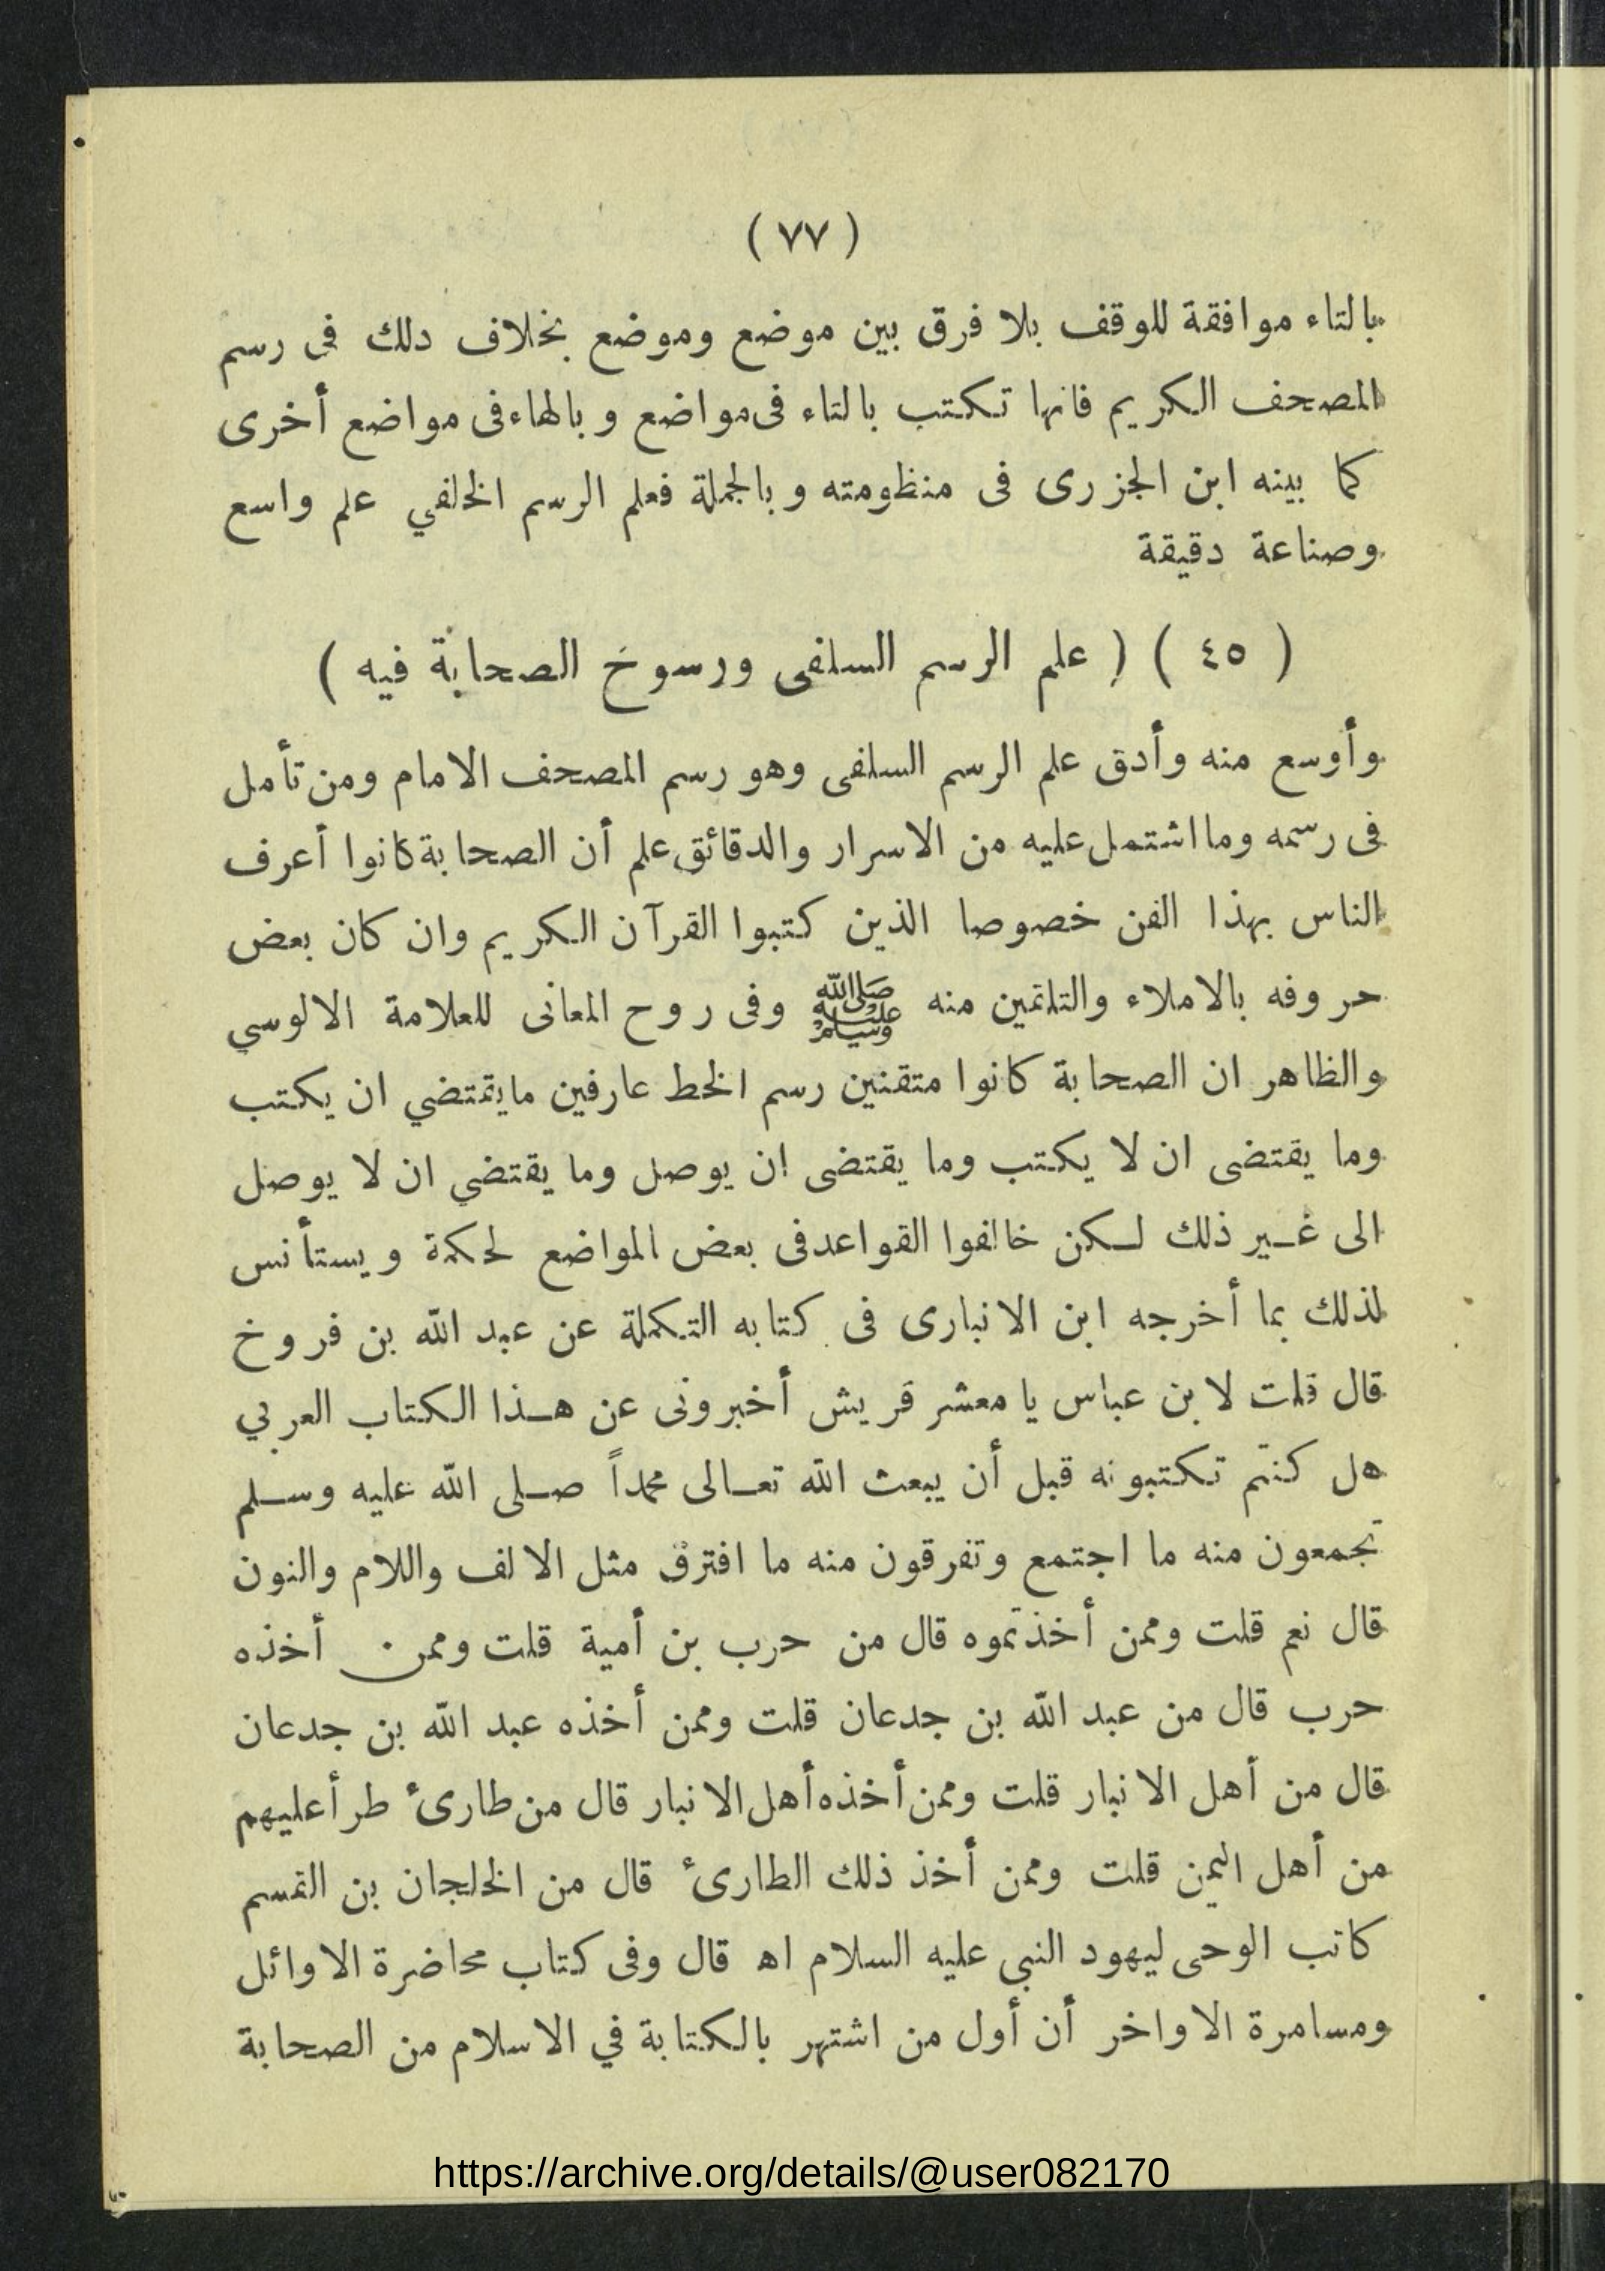 ( ٧٧ )
بالتاء موافقة للوقف بلا فرق بين موضع وموضع بخلاف دلك فى رسم
المصحف الكريم فانها تكتب بالتاء فى مواضع وبالهاء فى مواضع أخرى
كما بينه ابن الجزرى فى منظومته وبالجملة فعلم الرسم الخلفي علم واسع
وصناعة دقيقة
( ٤٥ ) ( علم الرسم السلفى ورسوخ الصحابة فيه )
وأوسع منه وأدق علم الرسم السلفى وهو رسم المصحف الامام ومن تأمل
فى رسمه وما اشتمل عليه من الاسرار والدقائق علم أن الصحابة كانوا أعرف
الناس بهذا الفن خصوصا الذين كتبوا القرآن الكريم وان كان بعض
حروفه بالاملاء والتلقين منه ﷺ وفى روح المعانى للعلامة الالوسي
والظاهر ان الصحابة كانوا متقنين رسم الخط عارفين مايقتضي ان يكتب
وما يقتضى ان لا يكتب وما يقتضى ان يوصل وما يقتضي ان لا يوصل
الى غير ذلك لكن خالفوا القواعد فى بعض المواضع لحكمة ويستأنس
لذلك بما أخرجه ابن الانبارى فى كتابه التكملة عن عبد الله بن فروخ
قال قلت لابن عباس يا معشر قريش أخبرونى عن هذا الكتاب العربي
هل كنتم تكتبونه قبل أن يبعث الله تعالى محمداً صلى الله عليه وسلم
تجمعون منه ما اجتمع وتفرقون منه ما افترق مثل الالف واللام والنون
قال نعم قلت وممن أخذتموه قال من حرب بن أمية قلت وممن أخذه
حرب قال من عبد الله بن جدعان قلت وممن أخذه عبد الله بن جدعان
قال من أهل الانبار قلت وممن أخذه أهل الانبار قال من طارئ طرأ عليهم
من أهل اليمن قلت وممن أخذ ذلك الطارئ قال من الخلجان بن القسم
كاتب الوحى ليهود النبي عليه السلام اه قال وفى كتاب محاضرة الاوائل
ومسامرة الاواخر أن أول من اشتهر بالكتابة في الاسلام من الصحابة
https://archive.org/details/@user082170